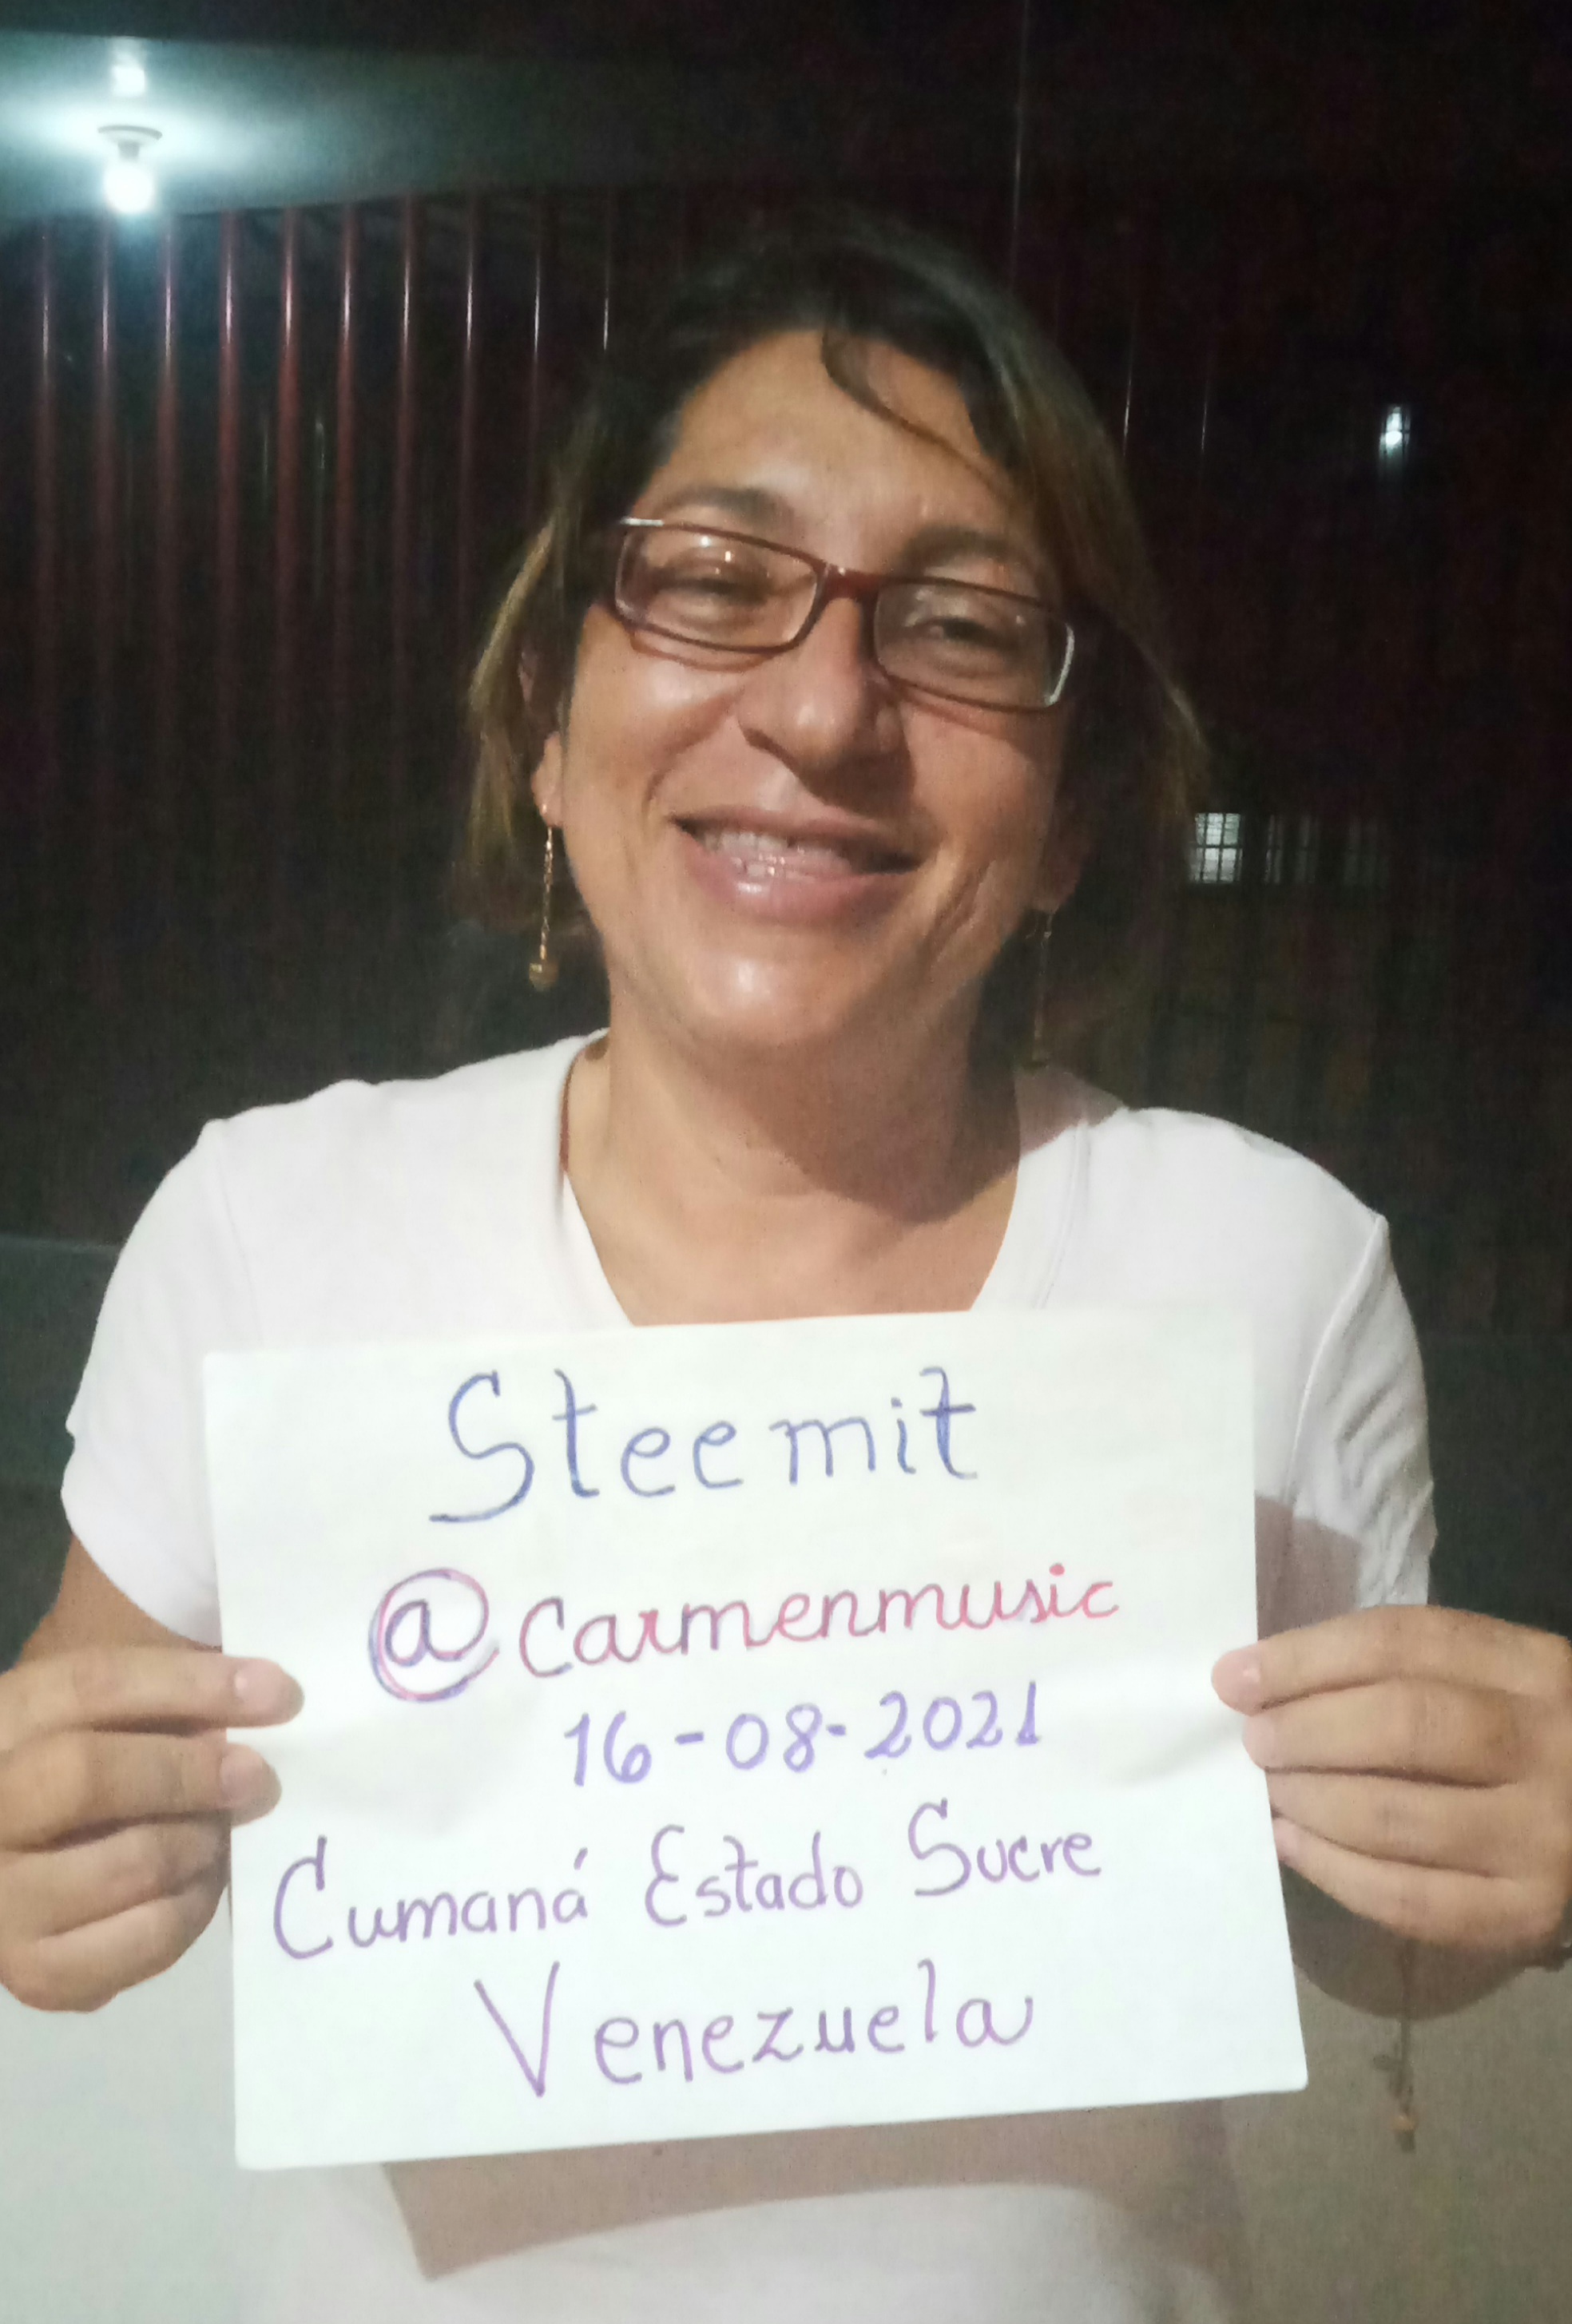 Steemit
@carmenmusic
16-08-2021
Cumaná Estado Sucre
Venezuela